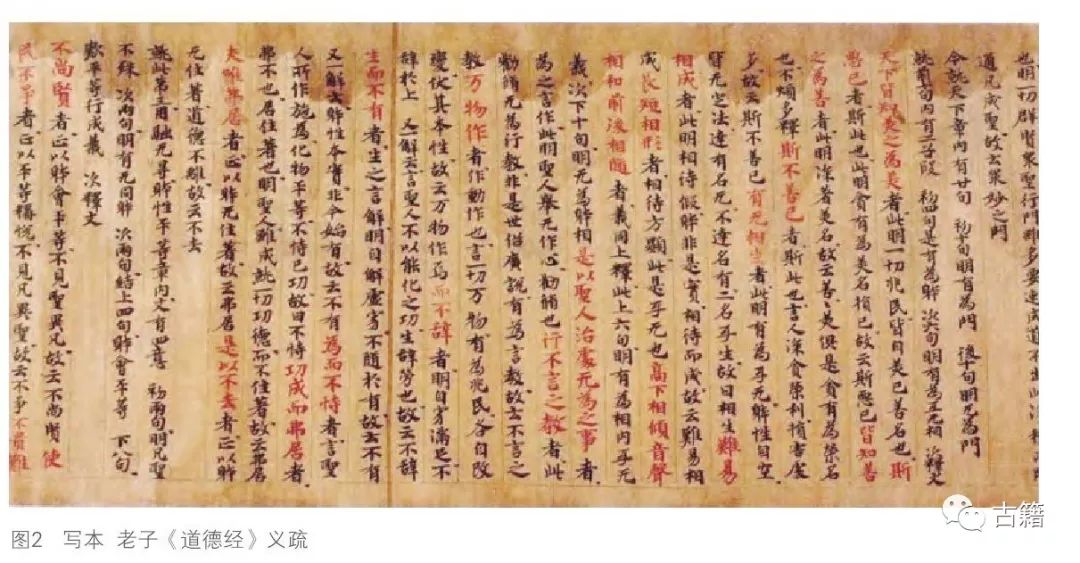 也明一切群賢衆聖行門雖多要達
通凡成聖故云衆妙之門
今就天下章内有廿句 初十句明有為門 後十句明无為門
就前句内有二子段 初四句是有為解 次六句明有為互无相 次釋文
天下皆知美之為美者此明一切凡民皆自美已善名也斯
惡已者斯此也此明貪有為美名損已故云斯惡已皆知善
之為善者此明深著美名故云善美俱是貪有為榮名
也不煩多釋斯不善已者斯此也言人深貪榮利損害處
多故云斯不善已有无相生者此明有為互无解性自空
實无定法達有名无不達名有二名互生故曰相生難易
相成者此明相待假解非是實相待而成故云難易相
成長短相形者相待方顯此是互无也高下相傾音聲
相和前後相隨者義同上釋此上六句明有為相内互无
義次下十句明无為解相是以聖人治處无為之事者
為之言作此明聖人舉无作心勸脩也行不言之教者此
勸脩无為行教非是世俗廣說有為言教故云不言之
教万物作者作動作也言一切万物有為凡民各自改
變伏其本性故云万物作焉而不辭者明自穿滿足不
辭於上 又一解云言聖人不以能化之功生辭勞也故云不辭
生而不有者生之言解明自解虛穿不随於有故云不有
又一解云解性本實非今始有故云不有為而不恃者言聖
人所作施為化物平等不恃已功故曰不恃功成而弗居者
弗不也居住著也明聖人雖成就一切功德而不住著故云弗居
夫唯弗居者正以解无住著故云弗居是以不去者正以解
无住著道德不離故云不去
就此第三用融无尋解性平等章内文有四意 初兩句明凡聖
不殊 次兩句明有无同解 次兩句結上四句解會平等 下八句
歎平等行成義 次釋文
不尚賢者正以解會平等不見聖異凡故云不尚賢使
民不爭者正以平等攝悅不見凡異聖故云不爭不貴難
古籍
图2 写本 老子《道德经》义疏